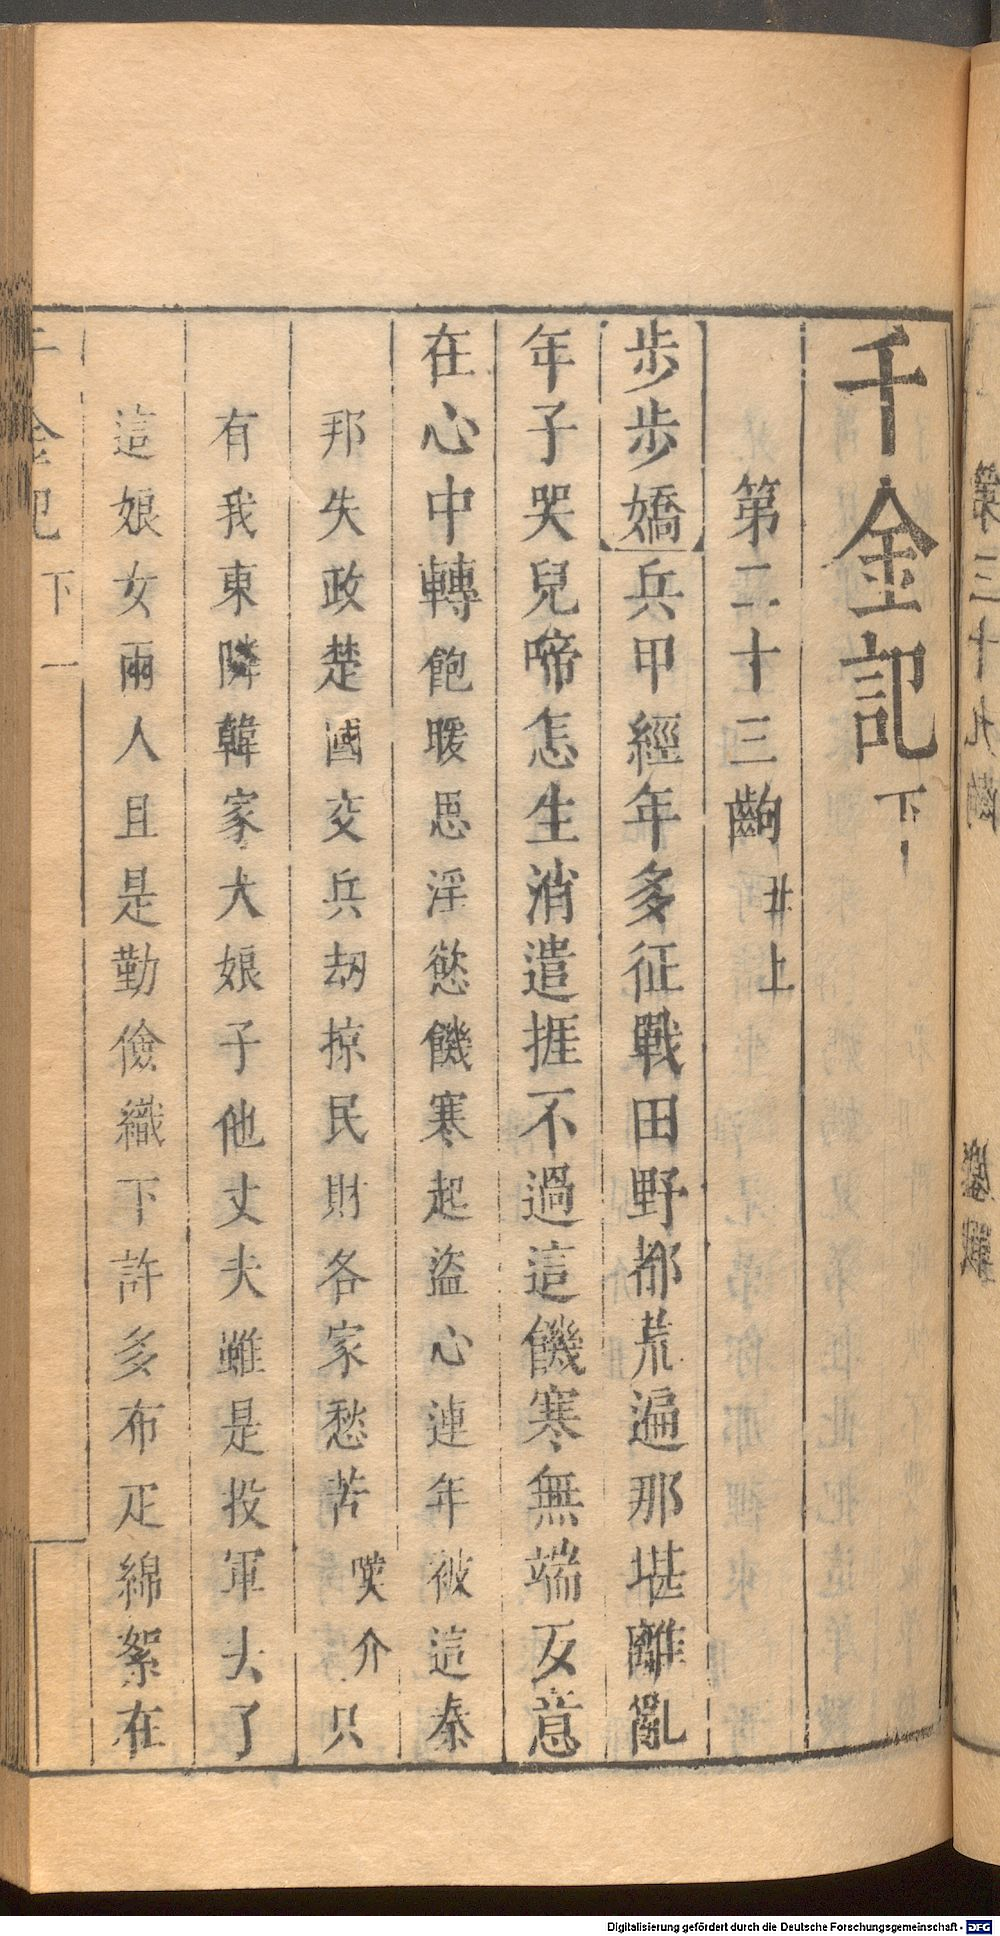 千金記下
第二十三齣 丑上
步步嬌 兵甲經年多征戰田野都荒遍那堪離亂
年子哭兒啼怎生消遣捱不過這饑寒無端反意
在心中轉 飽暖思淫慾饑寒起盜心連年被這秦
邦失政楚國交兵刼掠民財各家愁苦 嘆介 只
有我東隣韓家大娘子他丈夫雖是投軍去了
這娘女兩人且是勤儉織下許多布疋綿絮在
千金記 下 一
第三十九
Digitalisierung gefördert durch die Deutsche Forschungsgemeinschaft - DFG